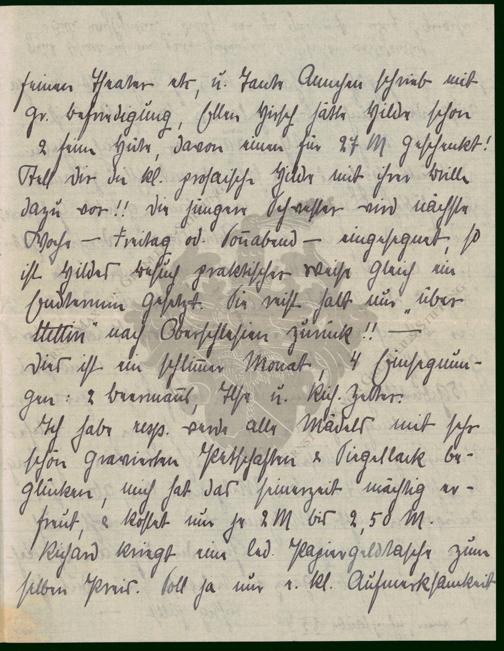 feinen Theater etc, u. Tante Annchen schrieb mit
gr. Befriedigung, Ellen Hirsch hätte Hilde schon
2 feine Hüte, davon einen für 27 M geschenkt!
Stell dir die kl. prosaische Hilde mit ihrer Brille
dazu vor!! Die jüngere Schwester wird nächste
Woche – Freitag od. Soñabend – eingesegnet, so
ist Hildes Besuch praktischer weise gleich ein
Endtermin gesetzt. Sie reist halt nur „über
Stettin" nach Oberschlesien zurück!! —
Dies ist ein schlimer Monat, 4 Einsegnun-
gen: 2 Beermanns, Ilse u. Rich. Zetter.
Ich habe resp. werde alle Mädels mit sehr
schön gravierten Petschaften & Siegellack be-
glücken, mich hat das seinerzeit mächtig er-
freut, & kostet nur je 2 M bis 2,50 M.
Richard kriegt eine led. Papiergeldtasche zum
selben Preis. Soll ja nur e. kl. Aufmerksamkeit